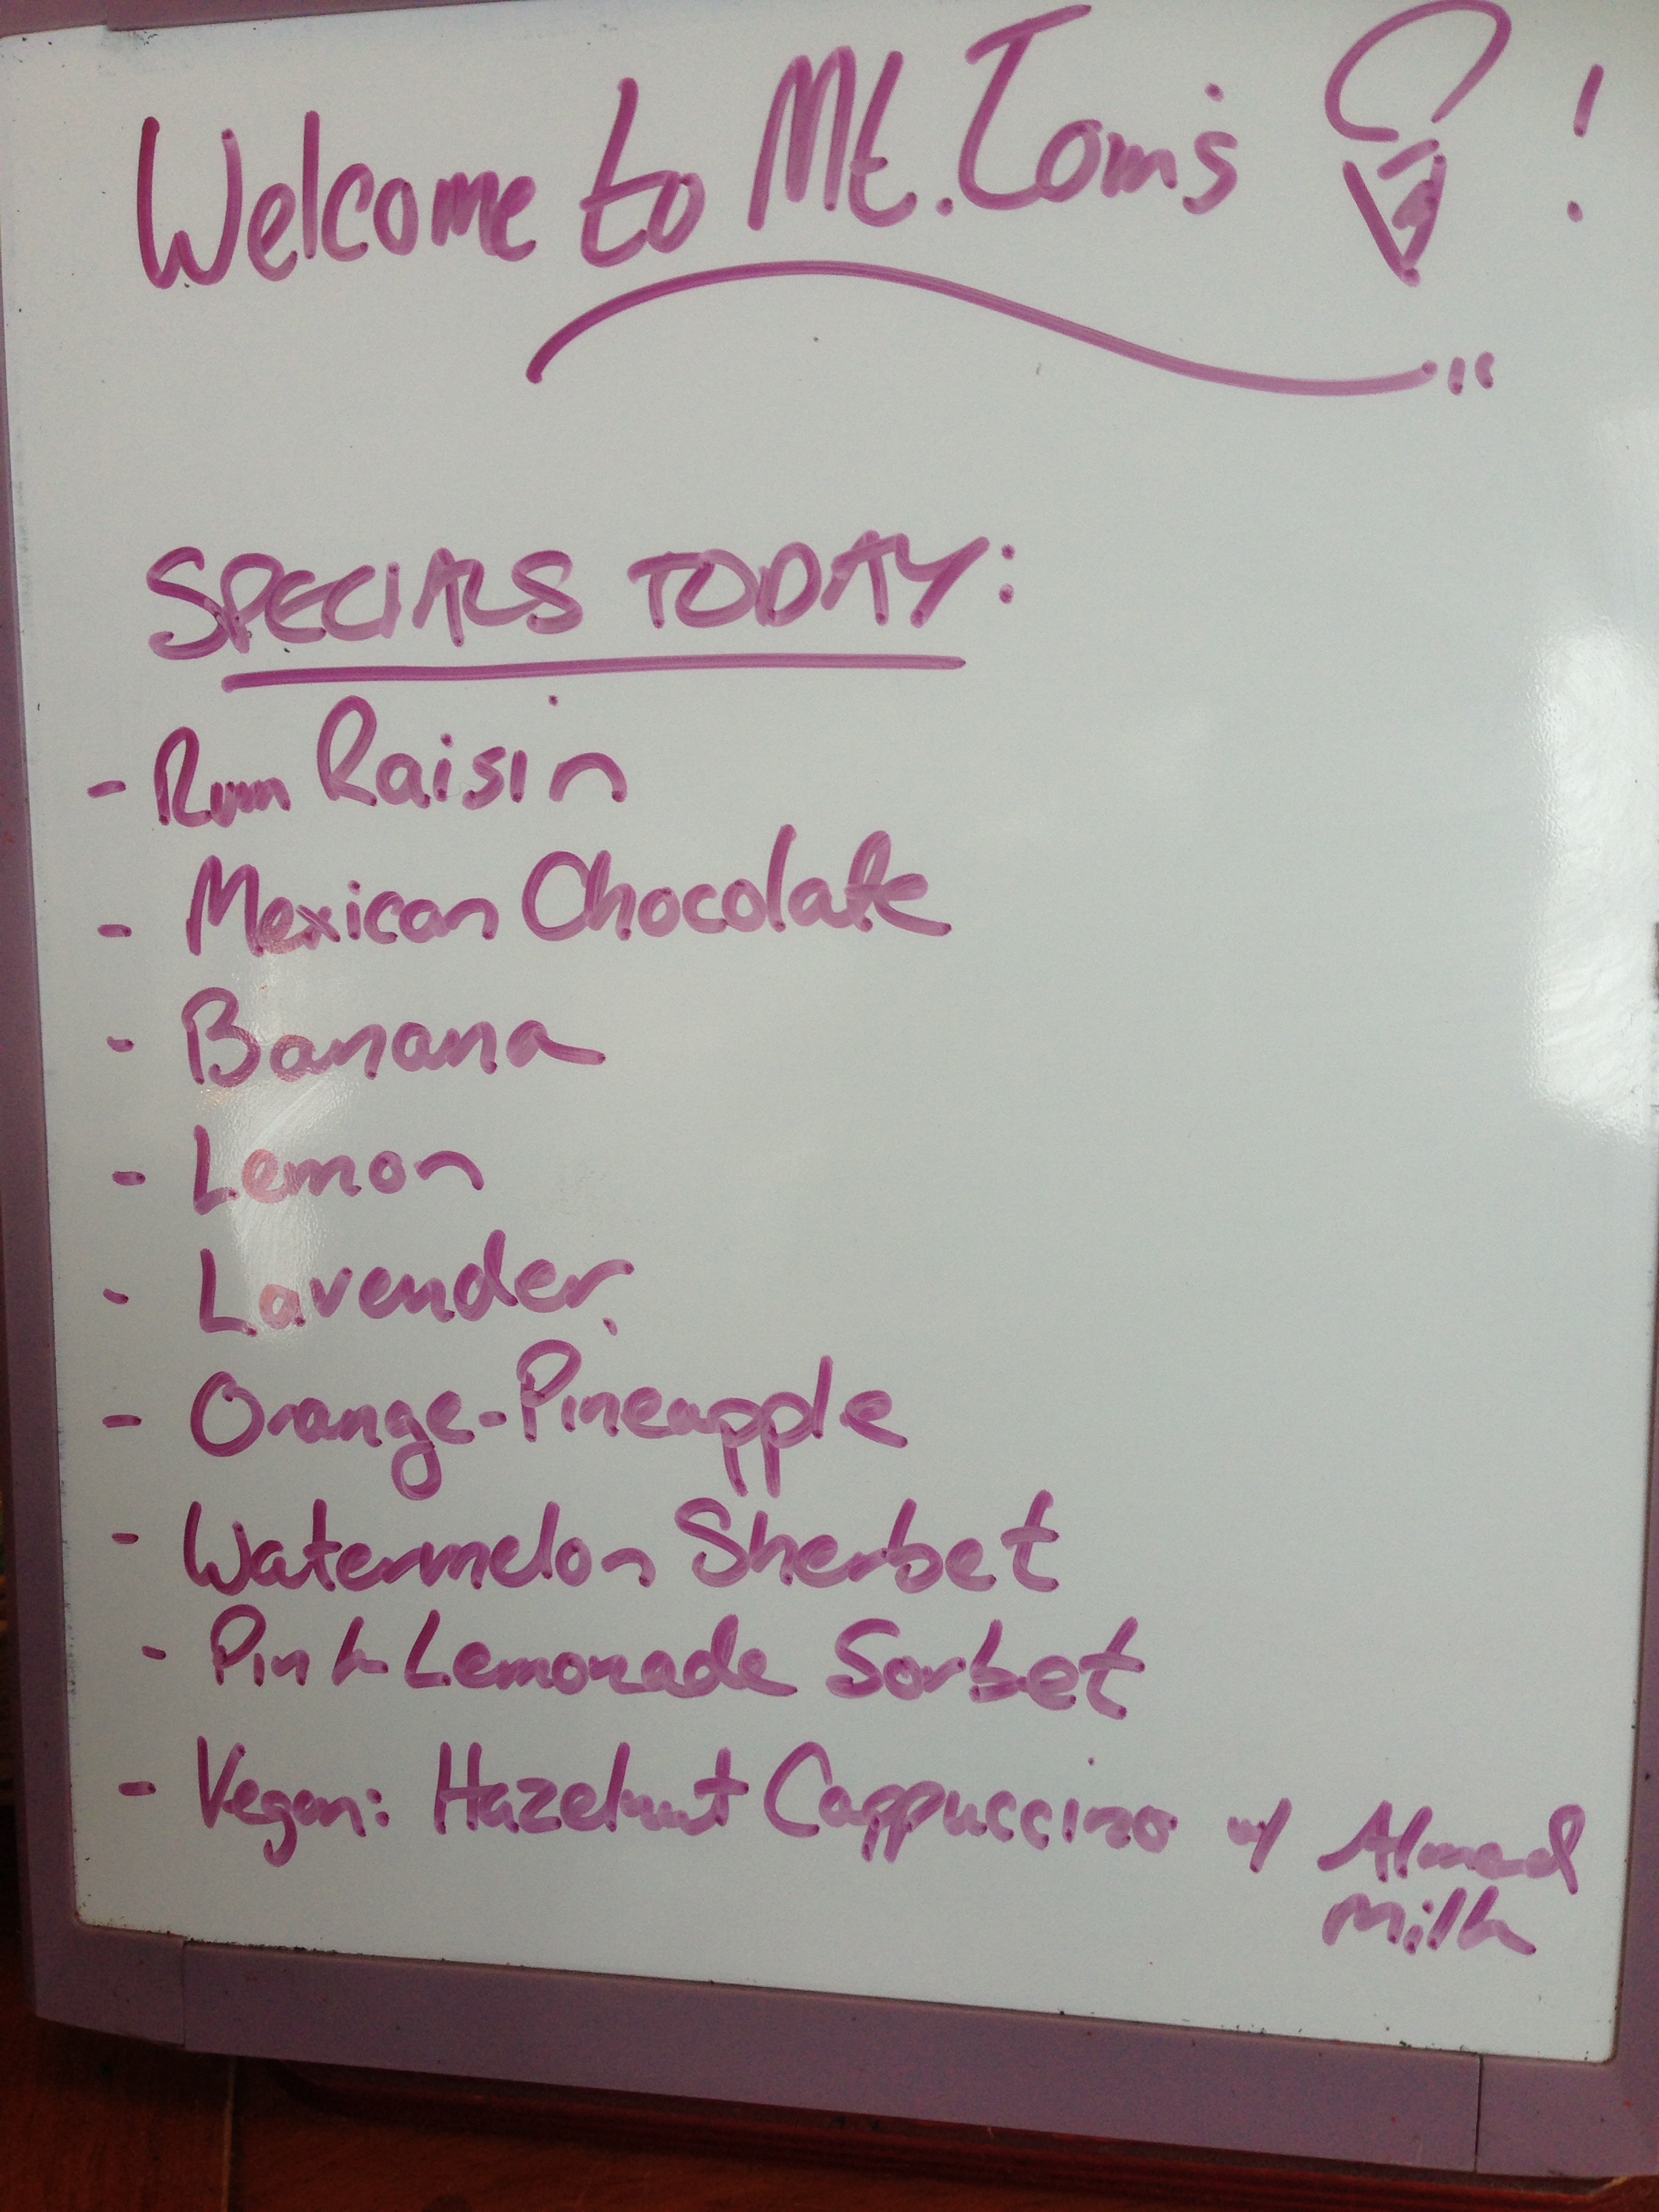 Welcome to Mt. Tom's !
SPECIALS TODAY:
- Rum Raisin
- Mexican Chocolate
- Banana
- Lemon
- Lavender
- Orange-Pineapple
- Watermelon Sherbet
- Pink Lemonade Sorbet
- Vegan: Hazelnut Cappuccino w/ Almond
Milk